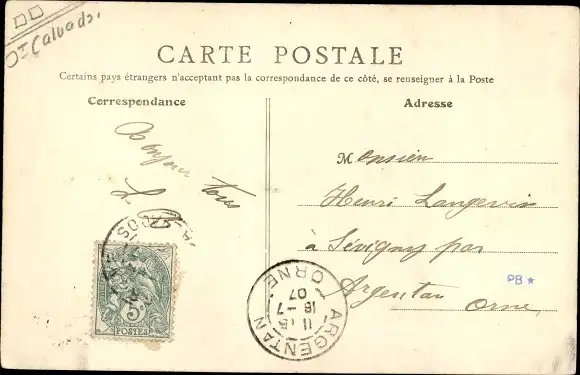 Calvados.
CARTE POSTALE
Certains pays étrangers n'acceptant pas la correspondance de ce côté, se renseigner à la Poste
Correspondance
Adresse
Bonjour
tous
Monsieur
Henri Langevin
à Sévigny par
Argentan
Orne,
PB★
5c
POSTES
ARGENTAN
11 15
18 -7
07
ORNE